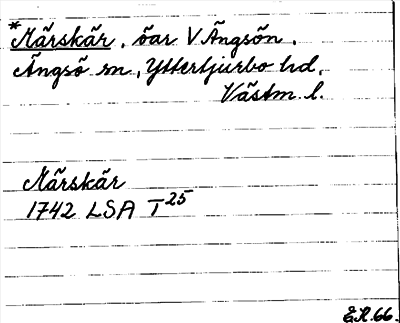 *Märskär, öar V Ängsön,
Ängsö sn, Yttertjurbo hd,
Västm. l.
Märskär
1742 LSA T25
E.R.66.